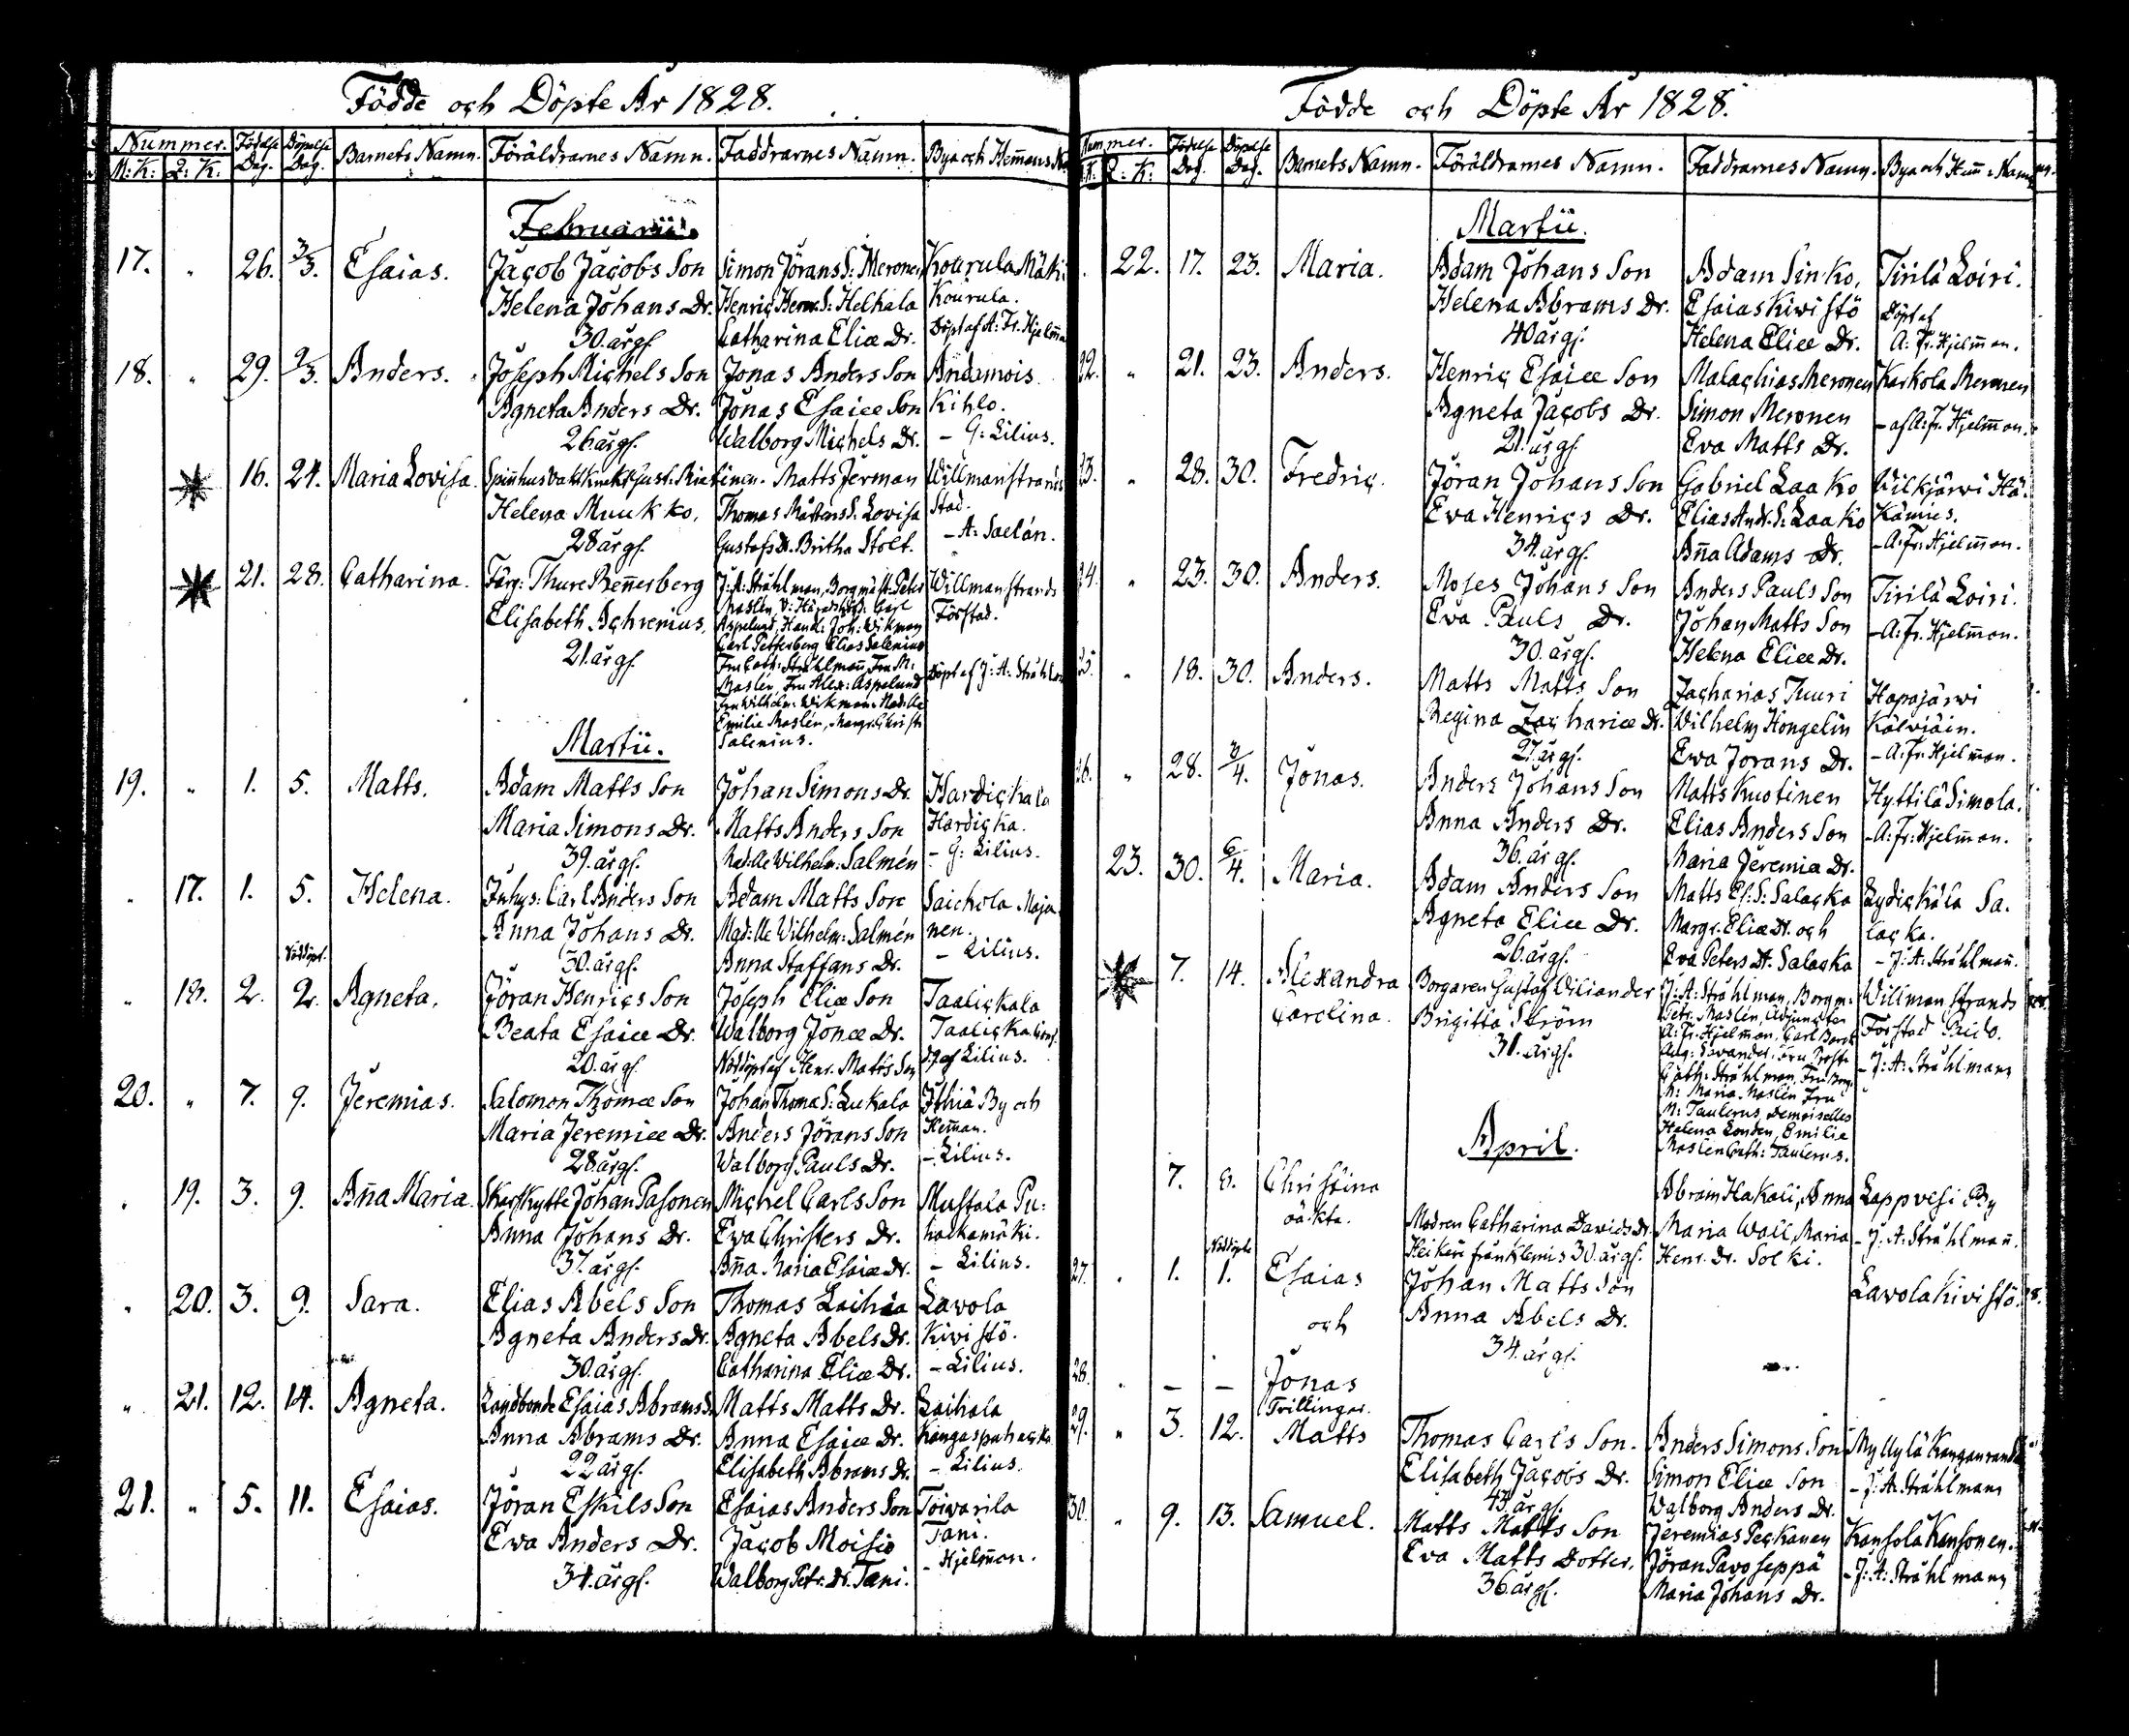 Födde och Döpte År 1828.
Nummer. Födelse Döpelse Barnets Namn. Föräldrarnes Namn. Faddrarnes Namn. Bya och Hemans
M: K: Q: K: Dag. Dag.
Februarii.
17. " 26. 3/3. Esaias. Jacob Jacobs Son Simon Jörans S: Meronen Kourula Mäki
Helena Johans Dr. Henric Herm. S: Helhala Kourula.
30. årgl. Catharina Eliæ Dr. Döpt af A: Fr. Hjelman
18. " 29. 2/3. Anders. Joseph Michels Son Jonas Anders Son Andamois
Agneta Anders Dr. Jonas Esaiæ Son Kihlo.
26 årgl. Walborg Michels Dr. – G: Lilius.
16. 24. Maria Lovisa. Spinhus vakt Knekt Gust. Riatinen. Matts Jerman Willmanstrands
Helena Muukko, Thomas Mårtens S. Lovisa Stad.
28 årgl. Gustafs Dr. Britha Stolt. – A: Saelán.
21. 28. Catharina. Färg: Thure Renerberg J: A: Stråhlman, Borgmäst: Peter Willmanstrands
Elisabeth Achrenius, Maslén, V: Häradshöf: Carl Förstad.
Aspelund, Handl: Joh: Wikman
21. årgl. Carl Petterberg Elias Salenius
Fru Cath: Stråhlman, Fru M: Döpt af J: A: Stråhlman
Maslén, Fru Alex: Aspelund
Fru Wilhelm: Wikman. Mad:lle
Emilie Maslén, Margr. Christ:
Salenius.
Martii.
19. " 1. 5. Matts. Adam Matts Son Johan Simons Dr. Hardickala
Maria Simons Dr. Matts Anders Son Hardicka.
39. årgl. Mad:lle Wilhelm: Salmén – G: Lilius.
" 17. 1. 5. Helena. Inhys: Carl Anders Son Adam Matts Son Saichola Maja
Anna Johans Dr. Mad:lle Wilhelm: Salmén nen.
30. årgl. Anna Staffans Dr. – Lilius.
Nöddöpt.
" 18. 2. 2. Agneta. Jöran Henrics Son Joseph Eliæ Son Taalickala
Beata Esaiæ Dr. Walborg Jonæ Dr. Taalicka
20. årgl. Nöddöpt af Henr. Matts Son Lilius.
20. " 7. 9. Jeremias. Salomon Thomæ Son Johan Thomæ S: Lukala Ithiä By och
Maria Jeremiæ Dr. Anders Jörans Son Heman.
28. årgl. Walborg Pauls Dr. – Lilius.
" 19. 3. 9. Aña Maria. Skarfskytte Johan Pasonen Michel Carls Son Mustola Pu:
Anna Johans Dr. Eva Christers Dr. halkamäki.
37. årgl. Aña Maria Esaiæ Dr. – Lilius.
" 20. 3. 9. Sara. Elias Abels Son Thomas Laihia Lavola
Agneta Anders Dr. Agneta Abels Dr. Kivistö.
30. årgl. Catharina Eliæ Dr. – Lilius.
" 21. 12. 14. Agneta. Landbonde Esaias Abrams S. Matts Matts Dr. Laihala
Anna Abrams Dr. Anna Esaiæ Dr. Kangaspuhacka
22 årgl. Elisabeth Abrams Dr. – Lilius.
21. " 5. 11. Esaias. Jöran Eskils Son Esaias Anders Son Toivarila
Eva Anders Dr. Jacob Moisio Tani.
34. årgl. Walborg Petr. Dr. Tani. – Hjelman.
Födde och Döpte År 1828.
Nummer. Födelse Döpelse Barnets Namn. Föräldrarnes Namn. Faddrarnes Namn. Bya och Hem: Namn
K: Q: K: Dag. Dag.
Martii.
22. 17. 23. Maria. Adam Johans Son Adam Sinko, Tirilä Loiri.
Helena Abrams Dr. Esaias Kiwistö Döpt af
40 årgl. Helena Eliæ Dr. A: Fr. Hjelman.
22. " 21. 23. Anders. Henric Esaiæ Son Malachias Meronen Karkola Meronen
Agneta Jacobs Dr. Simon Meronen – af A: Fr. Hjelman.
21. årgl. Eva Matts Dr.
23. " 28. 30. Fredric. Jöran Johans Son Gabriel Laako Vilkjärvi Hä:
Eva Henrics Dr. Elias Andr. S: Laako Kämies.
34. årgl. Aña Adams Dr. – A: Fr: Hjelman.
24. " 23. 30. Anders. Moses Johans Son Anders Pauls Son Tirilä Loiri.
Eva Pauls Dr. Johan Matts Son – A: Fr. Hjelman.
30. årgl. Helena Eliæ Dr.
25. " 18. 30. Anders. Matts Matts Son Zacharias Tuuri Hapajärwi
Regina Zachariæ Dr. Wilhelm Hongelin Kälviäin.
27. årgl. Ewa Jorans Dr. – A: Fr. Hjelman.
26. " 28. 3/4. Jonas. Anders Johans Son Matts Kuotinen Hyttilä Simola.
Anna Anders Dr. Elias Anders Son – A: Fr: Hjelman.
36. årgl. Maria Jeremiæ Dr.
23. 30. 6/4. Maria. Adam Anders Son Matts Es: S: Salacka Lydickälä Sa.
Agneta Eliæ Dr. Margr. Eliæ Dr. och lacka.
26. årgl. Eva Peters Dr. Salacka – J: A: Stråhlman.
7. 14. Alexandra Borgaren Gustaf Wiliander J: A: Stråhlman, Borgm: Willmanstrands
Carolina. Brigitta Ström Petr. Maslén, Adjuncten Förstad
31. årgl. A: Fr. Hjelman, Carl Borck – J: A: Stråhlman
Aug: Savander, Fru Prostin
Cath: Stråhlman, Fru
M: Maria Maslén Fru
M: Taulerus, Demoiselles
Helena Londen, Emilie
Maslén Cath: Taulerus.
April.
7. 8. Christina Abram Hakali, Anna Lappvesi By
oäkta. Modren Catharina Davids Dr. Maria Wall, Maria – J: A: Stråhlman.
Heikeri från Klemis 30. årgl. Henr. Dr. Solki.
Nöddöpte
27. " 1. 1. Esaias Johan Matts Son Lavola Kivistö.
och Anna Abels Dr.
34. årgl.
28. " – – Jonas
Tvillingar.
29. " 3. 12. Matts Thomas Carls Son. Anders Simons Son Myllylä Kanganranda
Elisabeth Jacobs Dr. Simon Eliæ Son – J: A: Stråhlman
43. årgl. Walborg Anders Dr.
30. " 9. 13. Samuel. Matts Matts Son Jeremias Peckanen Kansola Kansonen.
Eva Matts Dotter. Jöran Pavoseppä – J: A: Stråhlman
36 årgl. Maria Johans Dr.